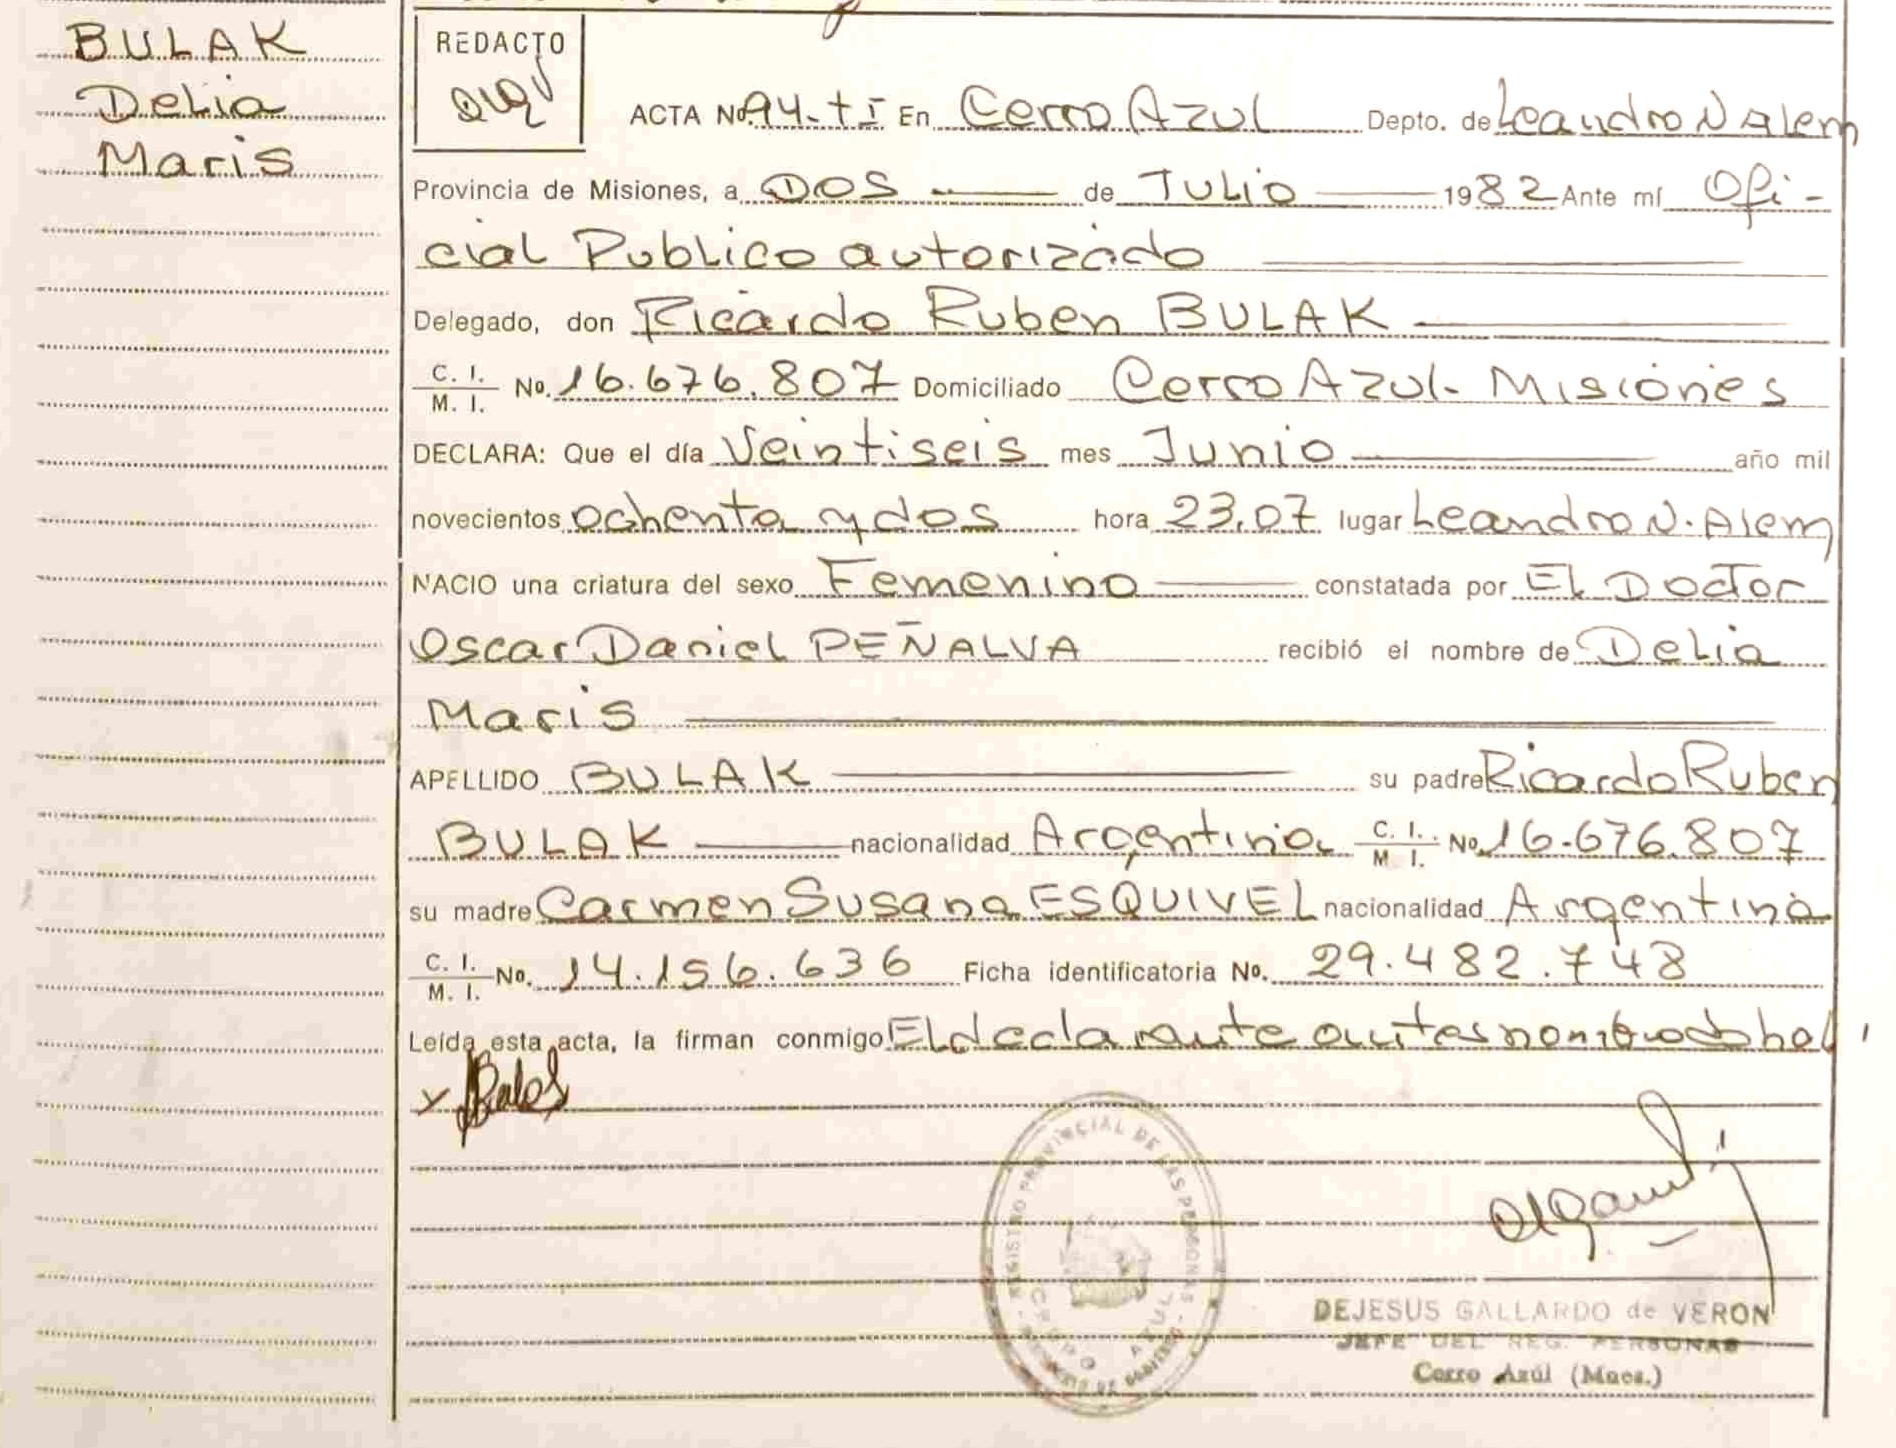 BULAK
Delia
Maris
REDACTO
ACTA No. 94-TI En Cerro Azul Depto. de Leandro N Alem
Provincia de Misiones, a DOS de Julio 1982 Ante mí Ofi-
cial Publico autorizado
Delegado, don Ricardo Ruben BULAK
C. I.
M. I. No. 16.676.807 Domiciliado Cerro Azul- Misiones
DECLARA: Que el día Veintiseis mes Junio año mil
novecientos ochenta y dos hora 23,07 lugar Leandro N. Alem
NACIO una criatura del sexo Femenino constatada por El Doctor
Oscar Daniel PEÑALVA recibió el nombre de Delia
Maris
APELLIDO BULAK su padre Ricardo Ruben
BULAK nacionalidad Argentina C. I.
M I. No. 16.676.807
su madre Carmen Susana ESQUIVEL nacionalidad Argentina
C. I.
M. I. No. 14.156.636 Ficha identificatoria No. 29.482.748
Leída esta acta, la firman conmigo El declarante
REGISTRO PROVINCIAL DE LAS PERSONAS
CERRO AZUL
DEJESUS GALLARDO de VERON
JEFE DEL REG. PERSONAS
Cerro Azúl (Mnes.)